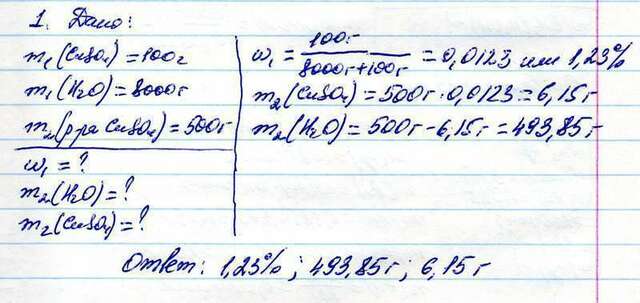 1. Дано:
m₁(CuSO₄) = 100г
m₁(H₂O) = 8000г
m₂(р-ра CuSO₄) = 500г
ω₁ = ?
m₂(H₂O) = ?
m₂(CuSO₄) = ?
ω₁ = 100г / 8000г + 100г = 0,0123 или 1,23%
m₂(CuSO₄) = 500г · 0,0123 = 6,15г
m₂(H₂O) = 500г - 6,15г = 493,85г
Ответ: 1,23% ; 493,85г ; 6,15г